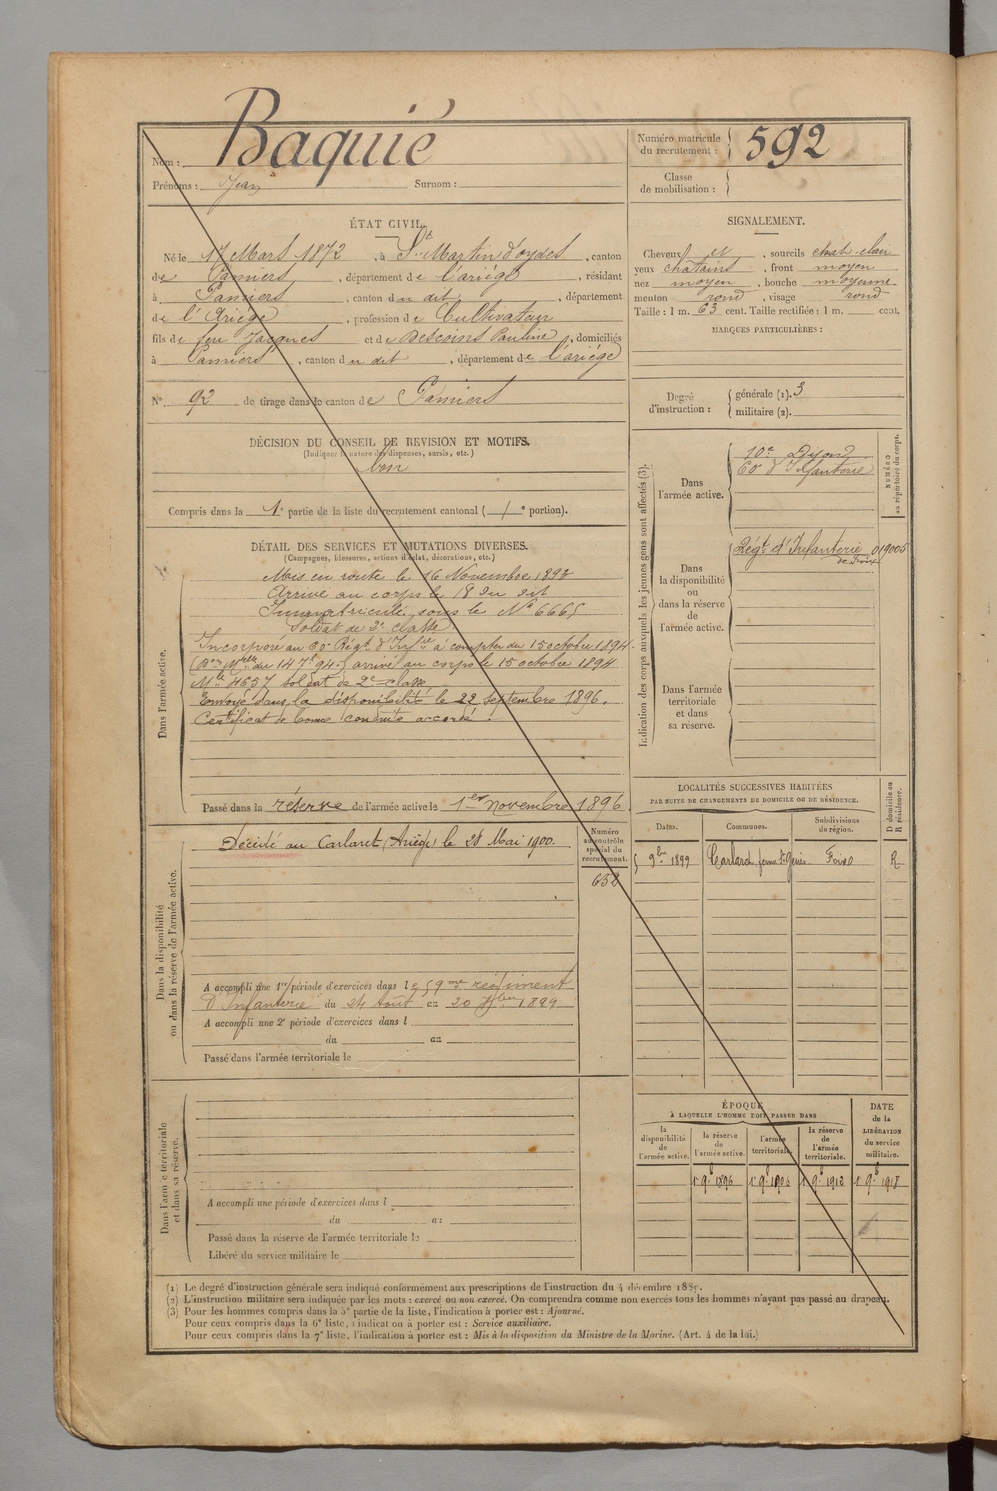 Nom : Baquié
Prénoms : Jean Surnom :
Numéro matricule du recrutement : 592
Classe de mobilisation :
ÉTAT CIVIL.
Né le 17 Mars 1872, à St Martin d'oydes, canton
de Pamiers, département de l'ariège, résidant
à Pamiers, canton du dit, département
de l'Ariège, profession de Cultivateur
fils de feu Jacques et de Descoins Pauline, domiciliés
à Pamiers, canton du dit, département de l'ariège
N° 92 de tirage dans le canton de Pamiers
SIGNALEMENT.
Cheveux et, sourcils chat. clair
yeux châtains, front moyen
nez moyen, bouche moyenne
menton rond, visage rond
Taille : 1 m. 63 cent. Taille rectifiée : 1 m. cent.
MARQUES PARTICULIÈRES :
Degré d'instruction : générale (1). 3
militaire (2).
DÉCISION DU CONSEIL DE REVISION ET MOTIFS.
(Indiquer la nature des dispenses, sursis, etc.)
bon
Compris dans la 1e partie de la liste du recrutement cantonal ( e portion).
DÉTAIL DES SERVICES ET MUTATIONS DIVERSES.
(Campagnes, blessures, actions d'éclat, décorations, etc.)
Dans l'armée active.
Mis en route le 16 Novembre 1893
Arrivé au corps le 18 du dit
Immatriculé sous le N° 6665
Soldat de 2e classe
Incorporé au Régt d'Infrie à compter du 15 octobre 1894
arrivé au corps le 15 octobre 1894
Mle 4657 soldat de 2e classe
Envoyé dans la disponibilité le 22 septembre 1896.
Certificat de bonne conduite accordé.
Passé dans la réserve de l'armée active le 1er novembre 1896
Indication des corps auxquels les jeunes gens sont affectés (3).
NUMÉRO au répertoire du corps.
Dans l'armée active.
10e
60 d'Infanterie
Dans la disponibilité ou dans la réserve de l'armée active.
Régt d'Infanterie 019005
de Foix
Dans l'armée territoriale et dans sa réserve.
LOCALITÉS SUCCESSIVES HABITÉES
PAR SUITE DE CHANGEMENTS DE DOMICILE OU DE RÉSIDENCE.
Dates. Communes. Subdivisions de région. D domicile ou R résidence.
9bre 1899 Carlaret ferme St Genis Foix R
Dans la disponibilité ou dans la réserve de l'armée active.
Numéro au contrôle spécial du recrutement.
652
Décédé au Carlaret (Ariège) le 28 Mai 1900.
A accompli une 1re période d'exercices dans le 59me régiment
D'Infanterie du 24 Août au 20 7bre 1899
A accompli une 2e période d'exercices dans l
du au
Passé dans l'armée territoriale le
Dans l'armée territoriale et dans sa réserve.
A accompli une période d'exercices dans l
du au
Passé dans la réserve de l'armée territoriale le
Libéré du service militaire le
ÉPOQUE
À LAQUELLE L'HOMME DOIT PASSER DANS
la disponibilité de l'armée active. la réserve de l'armée active. l'armée territoriale. la réserve de l'armée territoriale. DATE de la LIBÉRATION du service militaire.
1r 9b 1896 1r 9b 1903 1r 9b 1912 1r 9b 1918
(1) Le degré d'instruction générale sera indiqué conformément aux prescriptions de l'instruction du 4 décembre 1889.
(2) L'instruction militaire sera indiquée par les mots : exercé ou non exercé. On comprendra comme non exercés tous les hommes n'ayant pas passé au drapeau.
(3) Pour les hommes compris dans la 5e partie de la liste, l'indication à porter est : Ajourné.
Pour ceux compris dans la 6e liste, l'indication à porter est : Service auxiliaire.
Pour ceux compris dans la 7e liste, l'indication à porter est : Mis à la disposition du Ministre de la Marine. (Art. 4 de la loi.)